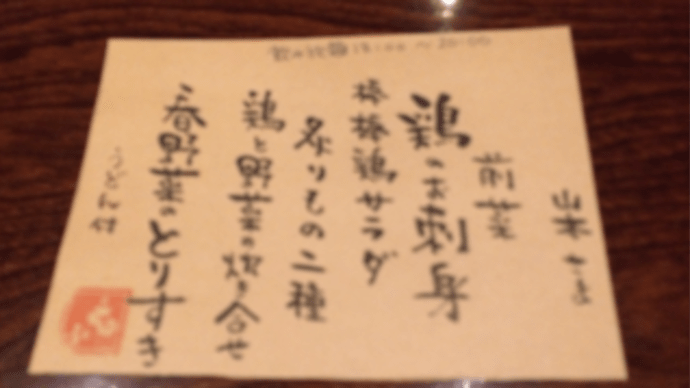 飲み放題 18:00〜20:00
山本さま
前菜
鶏のお刺身
棒棒鶏サラダ
炙りもの二種
鶏と野菜の炊き合せ
春野菜のとりすき
うどん付